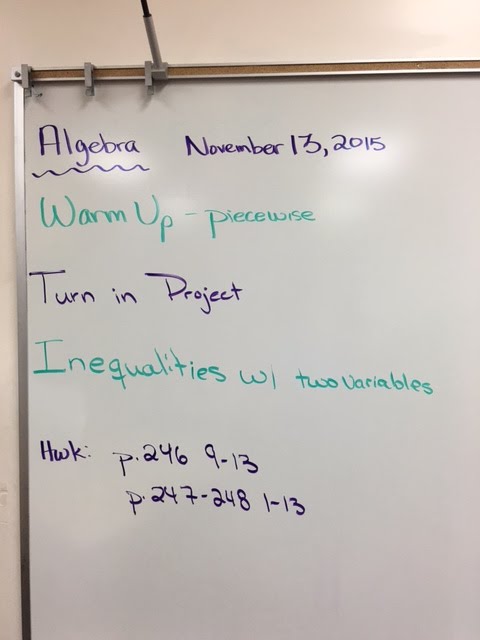 Algebra November 13, 2015
Warm Up - piecewise
Turn in Project
Inequalities w/ two variables
Hwk: p.246 9-13
p.247-248 1-13